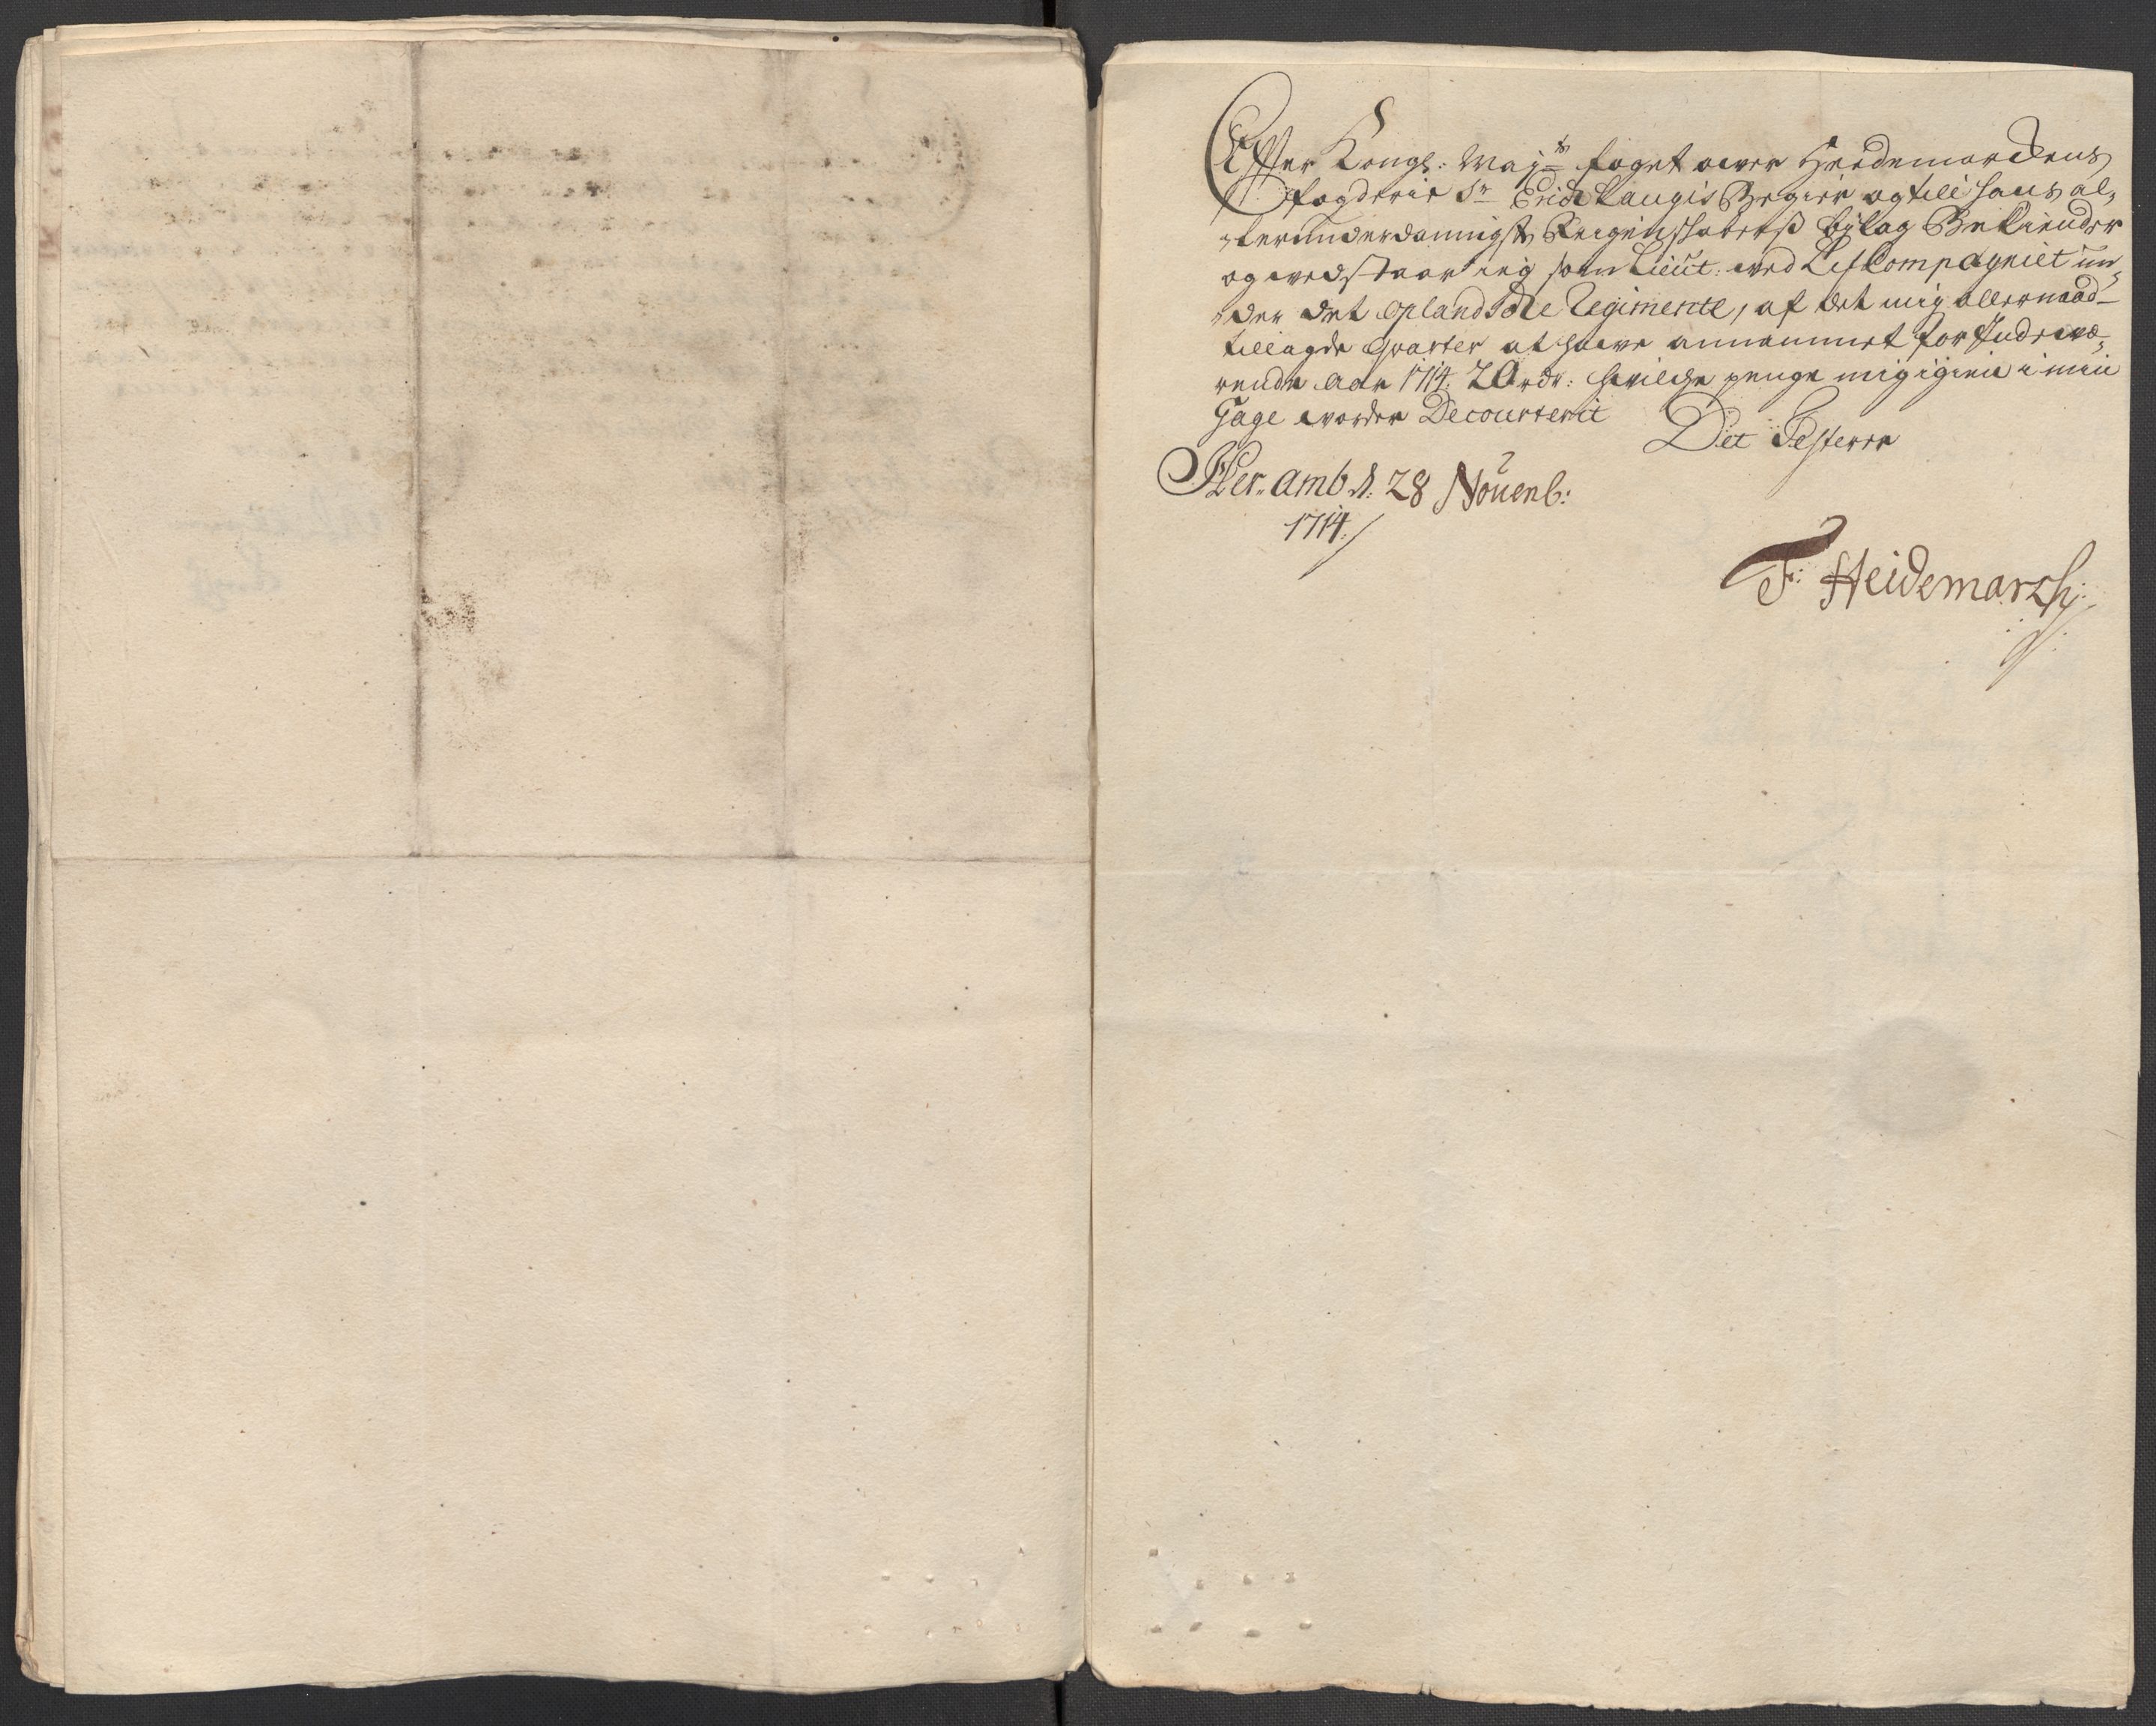 Efter Kongl: May:ts foget ower Heedemarckens
fogderie Sr Erich Laugis Begier og till hans al-
lerunderdannigste Reigenskabers bÿlag Bekiender
og wedstaar ieg som Lieüt: wed Lif Compagniet un-
der det oplandsche Regimente, af det mig allernaad-
tillagde Qvarter at hawe annammet for Inde wæ-
rende Aar 1714. 20 rdr: hwilche penge mig igien i min
Gage worder Decourterit
Det Testerer
Her-Amb d: 28 Nouenb:
1714
F: Heidemarsky